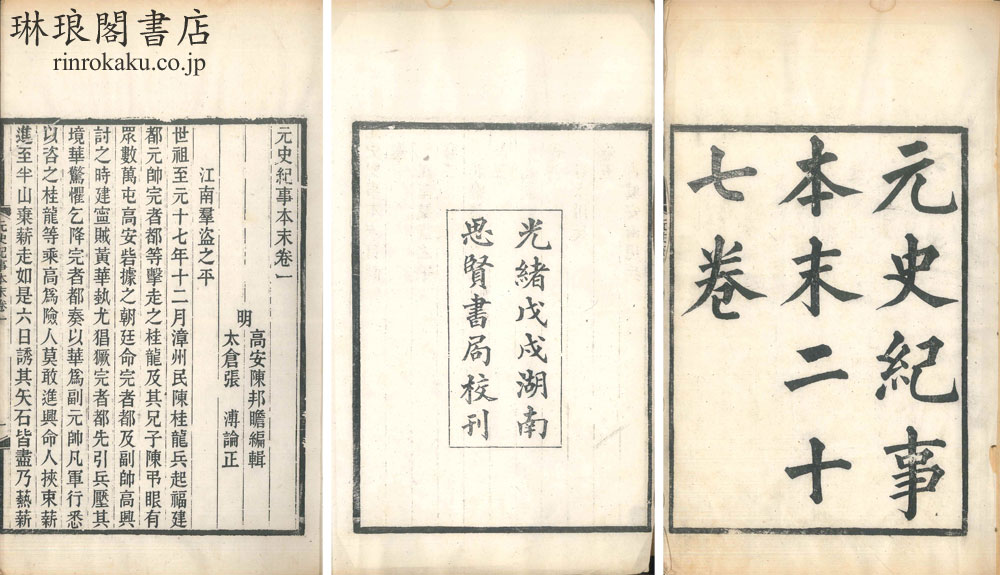 琳琅閣書店
rinrokaku.co.jp
元史紀事
本末二十
七卷
光緒戊戌湖南
思賢書局校刊
元史紀事本末卷一
明
高安陳邦瞻編輯
太倉張溥論正
江南羣盜之平
世祖至元十七年十二月漳州民陳桂龍兵起福建
都元帥完者都等擊走之桂龍及其兄子陳弔眼有
眾數萬屯高安砦據之朝廷命完者都及副帥高興
討之時建寧賊黃華執尤猖獗完者都先引兵壓其
境華驚懼乞降完者都奏以華爲副元帥凡軍行悉
以咨之桂龍等乘高爲險人莫敢進興命人挾束薪
進至半山棄薪走如是六日誘其矢石皆盡乃爇薪
元史紀事本末卷一